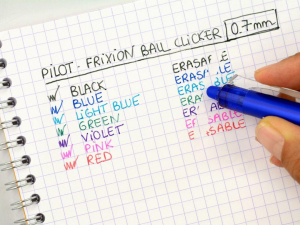 PILOT - FRIXION BALL CLICKER 0.7mm
BLACK
BLUE
LIGHT BLUE
GREEN
VIOLET
PINK
RED
ERASABLE
ERASABLE
ERASABLE